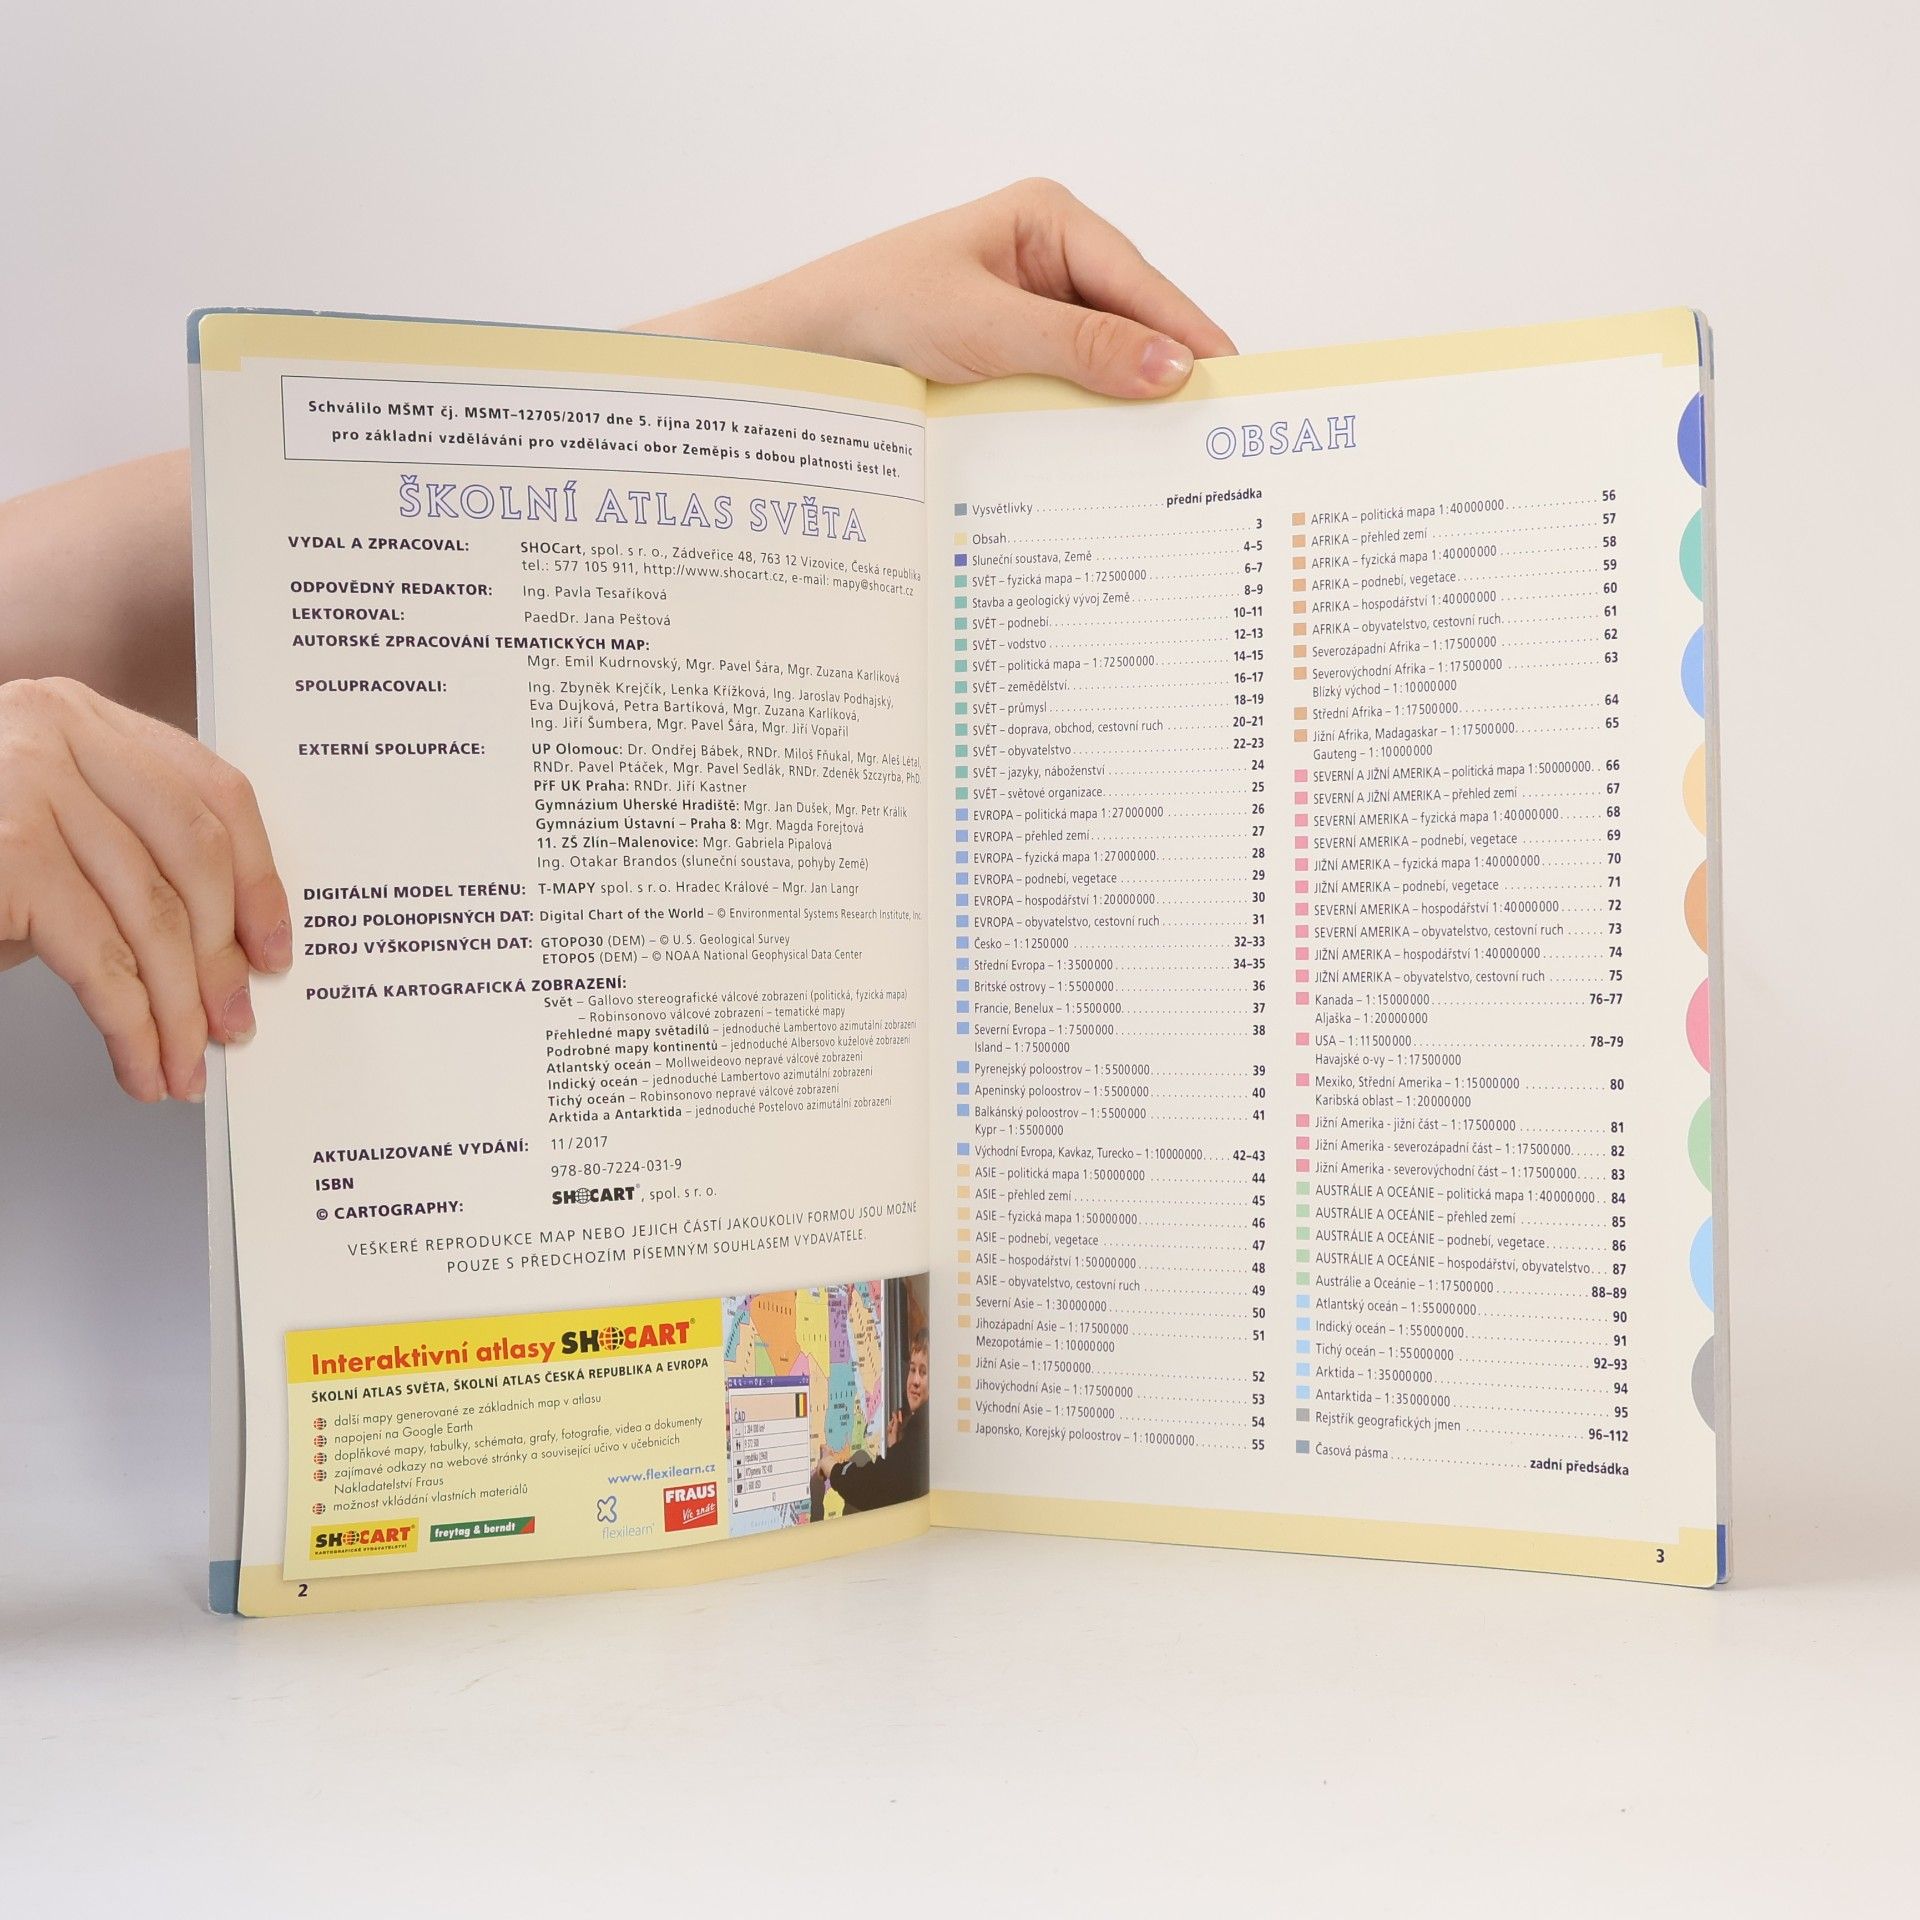 Schválilo MŠMT čj. MSMT–12705/2017 dne 5. října 2017 k zařazení do seznamu učebnic
pro základní vzdělávání pro vzdělávací obor Zeměpis s dobou platnosti šest let.
ŠKOLNÍ ATLAS SVĚTA
VYDAL A ZPRACOVAL: SHOCart, spol. s r. o., Zádveřice 48, 763 12 Vizovice, Česká republika
tel.: 577 105 911, http://www.shocart.cz, e-mail: mapy@shocart.cz
ODPOVĚDNÝ REDAKTOR: Ing. Pavla Tesaříková
LEKTOROVAL: PaedDr. Jana Peštová
AUTORSKÉ ZPRACOVÁNÍ TEMATICKÝCH MAP:
Mgr. Emil Kudrnovský, Mgr. Pavel Šára, Mgr. Zuzana Karlíková
SPOLUPRACOVALI: Ing. Zbyněk Krejčík, Lenka Křížková, Ing. Jaroslav Podhajský,
Eva Dujková, Petra Bartíková, Mgr. Zuzana Karlíková,
Ing. Jiří Šumbera, Mgr. Pavel Šára, Mgr. Jiří Vopařil
EXTERNÍ SPOLUPRÁCE: UP Olomouc: Dr. Ondřej Bábek, RNDr. Miloš Fňukal, Mgr. Aleš Létal,
RNDr. Pavel Ptáček, Mgr. Pavel Sedlák, RNDr. Zdeněk Szczyrba, PhD.
PřF UK Praha: RNDr. Jiří Kastner
Gymnázium Uherské Hradiště: Mgr. Jan Dušek, Mgr. Petr Králík
Gymnázium Ústavní – Praha 8: Mgr. Magda Forejtová
11. ZŠ Zlín–Malenovice: Mgr. Gabriela Pipalová
Ing. Otakar Brandos (sluneční soustava, pohyby Země)
DIGITÁLNÍ MODEL TERÉNU: T-MAPY spol. s r. o. Hradec Králové – Mgr. Jan Langr
ZDROJ POLOHOPISNÝCH DAT: Digital Chart of the World – © Environmental Systems Research Institute, Inc.
ZDROJ VÝŠKOPISNÝCH DAT: GTOPO30 (DEM) – © U. S. Geological Survey
ETOPO5 (DEM) – © NOAA National Geophysical Data Center
POUŽITÁ KARTOGRAFICKÁ ZOBRAZENÍ:
Svět – Gallovo stereografické válcové zobrazení (politická, fyzická mapa)
– Robinsonovo válcové zobrazení – tematické mapy
Přehledné mapy světadílů – jednoduché Lambertovo azimutální zobrazení
Podrobné mapy kontinentů – jednoduché Albersovo kuželové zobrazení
Atlantský oceán – Mollweideovo nepravé válcové zobrazení
Indický oceán – jednoduché Lambertovo azimutální zobrazení
Tichý oceán – Robinsonovo nepravé válcové zobrazení
Arktida a Antarktida – jednoduché Postelovo azimutální zobrazení
AKTUALIZOVANÉ VYDÁNÍ: 11/2017
ISBN 978-80-7224-031-9
© CARTOGRAPHY: SHOCART®, spol. s r. o.
VEŠKERÉ REPRODUKCE MAP NEBO JEJICH ČÁSTÍ JAKOUKOLIV FORMOU JSOU MOŽNÉ
POUZE S PŘEDCHOZÍM PÍSEMNÝM SOUHLASEM VYDAVATELE.
Interaktivní atlasy SHOCART®
ŠKOLNÍ ATLAS SVĚTA, ŠKOLNÍ ATLAS ČESKÁ REPUBLIKA A EVROPA
další mapy generované ze základních map v atlasu
napojení na Google Earth
doplňkové mapy, tabulky, schémata, grafy, fotografie, videa a dokumenty
zajímavé odkazy na webové stránky a související učivo v učebnicích
Nakladatelství Fraus
možnost vkládání vlastních materiálů
www.flexilearn.cz
flexilearn
FRAUS
Víc znát
SHOCART®
KARTOGRAFICKÉ VYDAVATELSTVÍ
freytag & berndt
ČAD
2
OBSAH
Vysvětlivky přední předsádka
Obsah 3
Sluneční soustava, Země 4–5
SVĚT – fyzická mapa – 1:72500000 6–7
Stavba a geologický vývoj Země 8–9
SVĚT – podnebí 10–11
SVĚT – vodstvo 12–13
SVĚT – politická mapa – 1:72500000 14–15
SVĚT – zemědělství 16–17
SVĚT – průmysl 18–19
SVĚT – doprava, obchod, cestovní ruch 20–21
SVĚT – obyvatelstvo 22–23
SVĚT – jazyky, náboženství 24
SVĚT – světové organizace 25
EVROPA – politická mapa 1:27000000 26
EVROPA – přehled zemí 27
EVROPA – fyzická mapa 1:27000000 28
EVROPA – podnebí, vegetace 29
EVROPA – hospodářství 1:20000000 30
EVROPA – obyvatelstvo, cestovní ruch 31
Česko – 1:1250000 32–33
Střední Evropa – 1:3500000 34–35
Britské ostrovy – 1:5500000 36
Francie, Benelux – 1:5500000 37
Severní Evropa – 1:7500000 38
Island – 1:7500000
Pyrenejský poloostrov – 1:5500000 39
Apeninský poloostrov – 1:5500000 40
Balkánský poloostrov – 1:5500000 41
Kypr – 1:5500000
Východní Evropa, Kavkaz, Turecko – 1:10000000 42–43
ASIE – politická mapa 1:50000000 44
ASIE – přehled zemí 45
ASIE – fyzická mapa 1:50000000 46
ASIE – podnebí, vegetace 47
ASIE – hospodářství 1:50000000 48
ASIE – obyvatelstvo, cestovní ruch 49
Severní Asie – 1:30000000 50
Jihozápadní Asie – 1:17500000 51
Mezopotámie – 1:10000000
Jižní Asie – 1:17500000 52
Jihovýchodní Asie – 1:17500000 53
Východní Asie – 1:17500000 54
Japonsko, Korejský poloostrov – 1:10000000 55
AFRIKA – politická mapa 1:40000000 56
AFRIKA – přehled zemí 57
AFRIKA – fyzická mapa 1:40000000 58
AFRIKA – podnebí, vegetace 59
AFRIKA – hospodářství 1:40000000 60
AFRIKA – obyvatelstvo, cestovní ruch 61
Severozápadní Afrika – 1:17500000 62
Severovýchodní Afrika – 1:17500000 63
Blízký východ – 1:10000000
Střední Afrika – 1:17500000 64
Jižní Afrika, Madagaskar – 1:17500000 65
Gauteng – 1:10000000
SEVERNÍ A JIŽNÍ AMERIKA – politická mapa 1:50000000 66
SEVERNÍ A JIŽNÍ AMERIKA – přehled zemí 67
SEVERNÍ AMERIKA – fyzická mapa 1:40000000 68
SEVERNÍ AMERIKA – podnebí, vegetace 69
JIŽNÍ AMERIKA – fyzická mapa 1:40000000 70
JIŽNÍ AMERIKA – podnebí, vegetace 71
SEVERNÍ AMERIKA – hospodářství 1:40000000 72
SEVERNÍ AMERIKA – obyvatelstvo, cestovní ruch 73
JIŽNÍ AMERIKA – hospodářství 1:40000000 74
JIŽNÍ AMERIKA – obyvatelstvo, cestovní ruch 75
Kanada – 1:15000000 76–77
Aljaška – 1:20000000
USA – 1:11500000 78–79
Havajské o-vy – 1:17500000
Mexiko, Střední Amerika – 1:15000000 80
Karibská oblast – 1:20000000
Jižní Amerika - jižní část – 1:17500000 81
Jižní Amerika - severozápadní část – 1:17500000 82
Jižní Amerika - severovýchodní část – 1:17500000 83
AUSTRÁLIE A OCEÁNIE – politická mapa 1:40000000 84
AUSTRÁLIE A OCEÁNIE – přehled zemí 85
AUSTRÁLIE A OCEÁNIE – podnebí, vegetace 86
AUSTRÁLIE A OCEÁNIE – hospodářství, obyvatelstvo 87
Austrálie a Oceánie – 1:17500000 88–89
Atlantský oceán – 1:55000000 90
Indický oceán – 1:55000000 91
Tichý oceán – 1:55000000 92–93
Arktida – 1:35000000 94
Antarktida – 1:35000000 95
Rejstřík geografických jmen 96–112
Časová pásma zadní předsádka
3